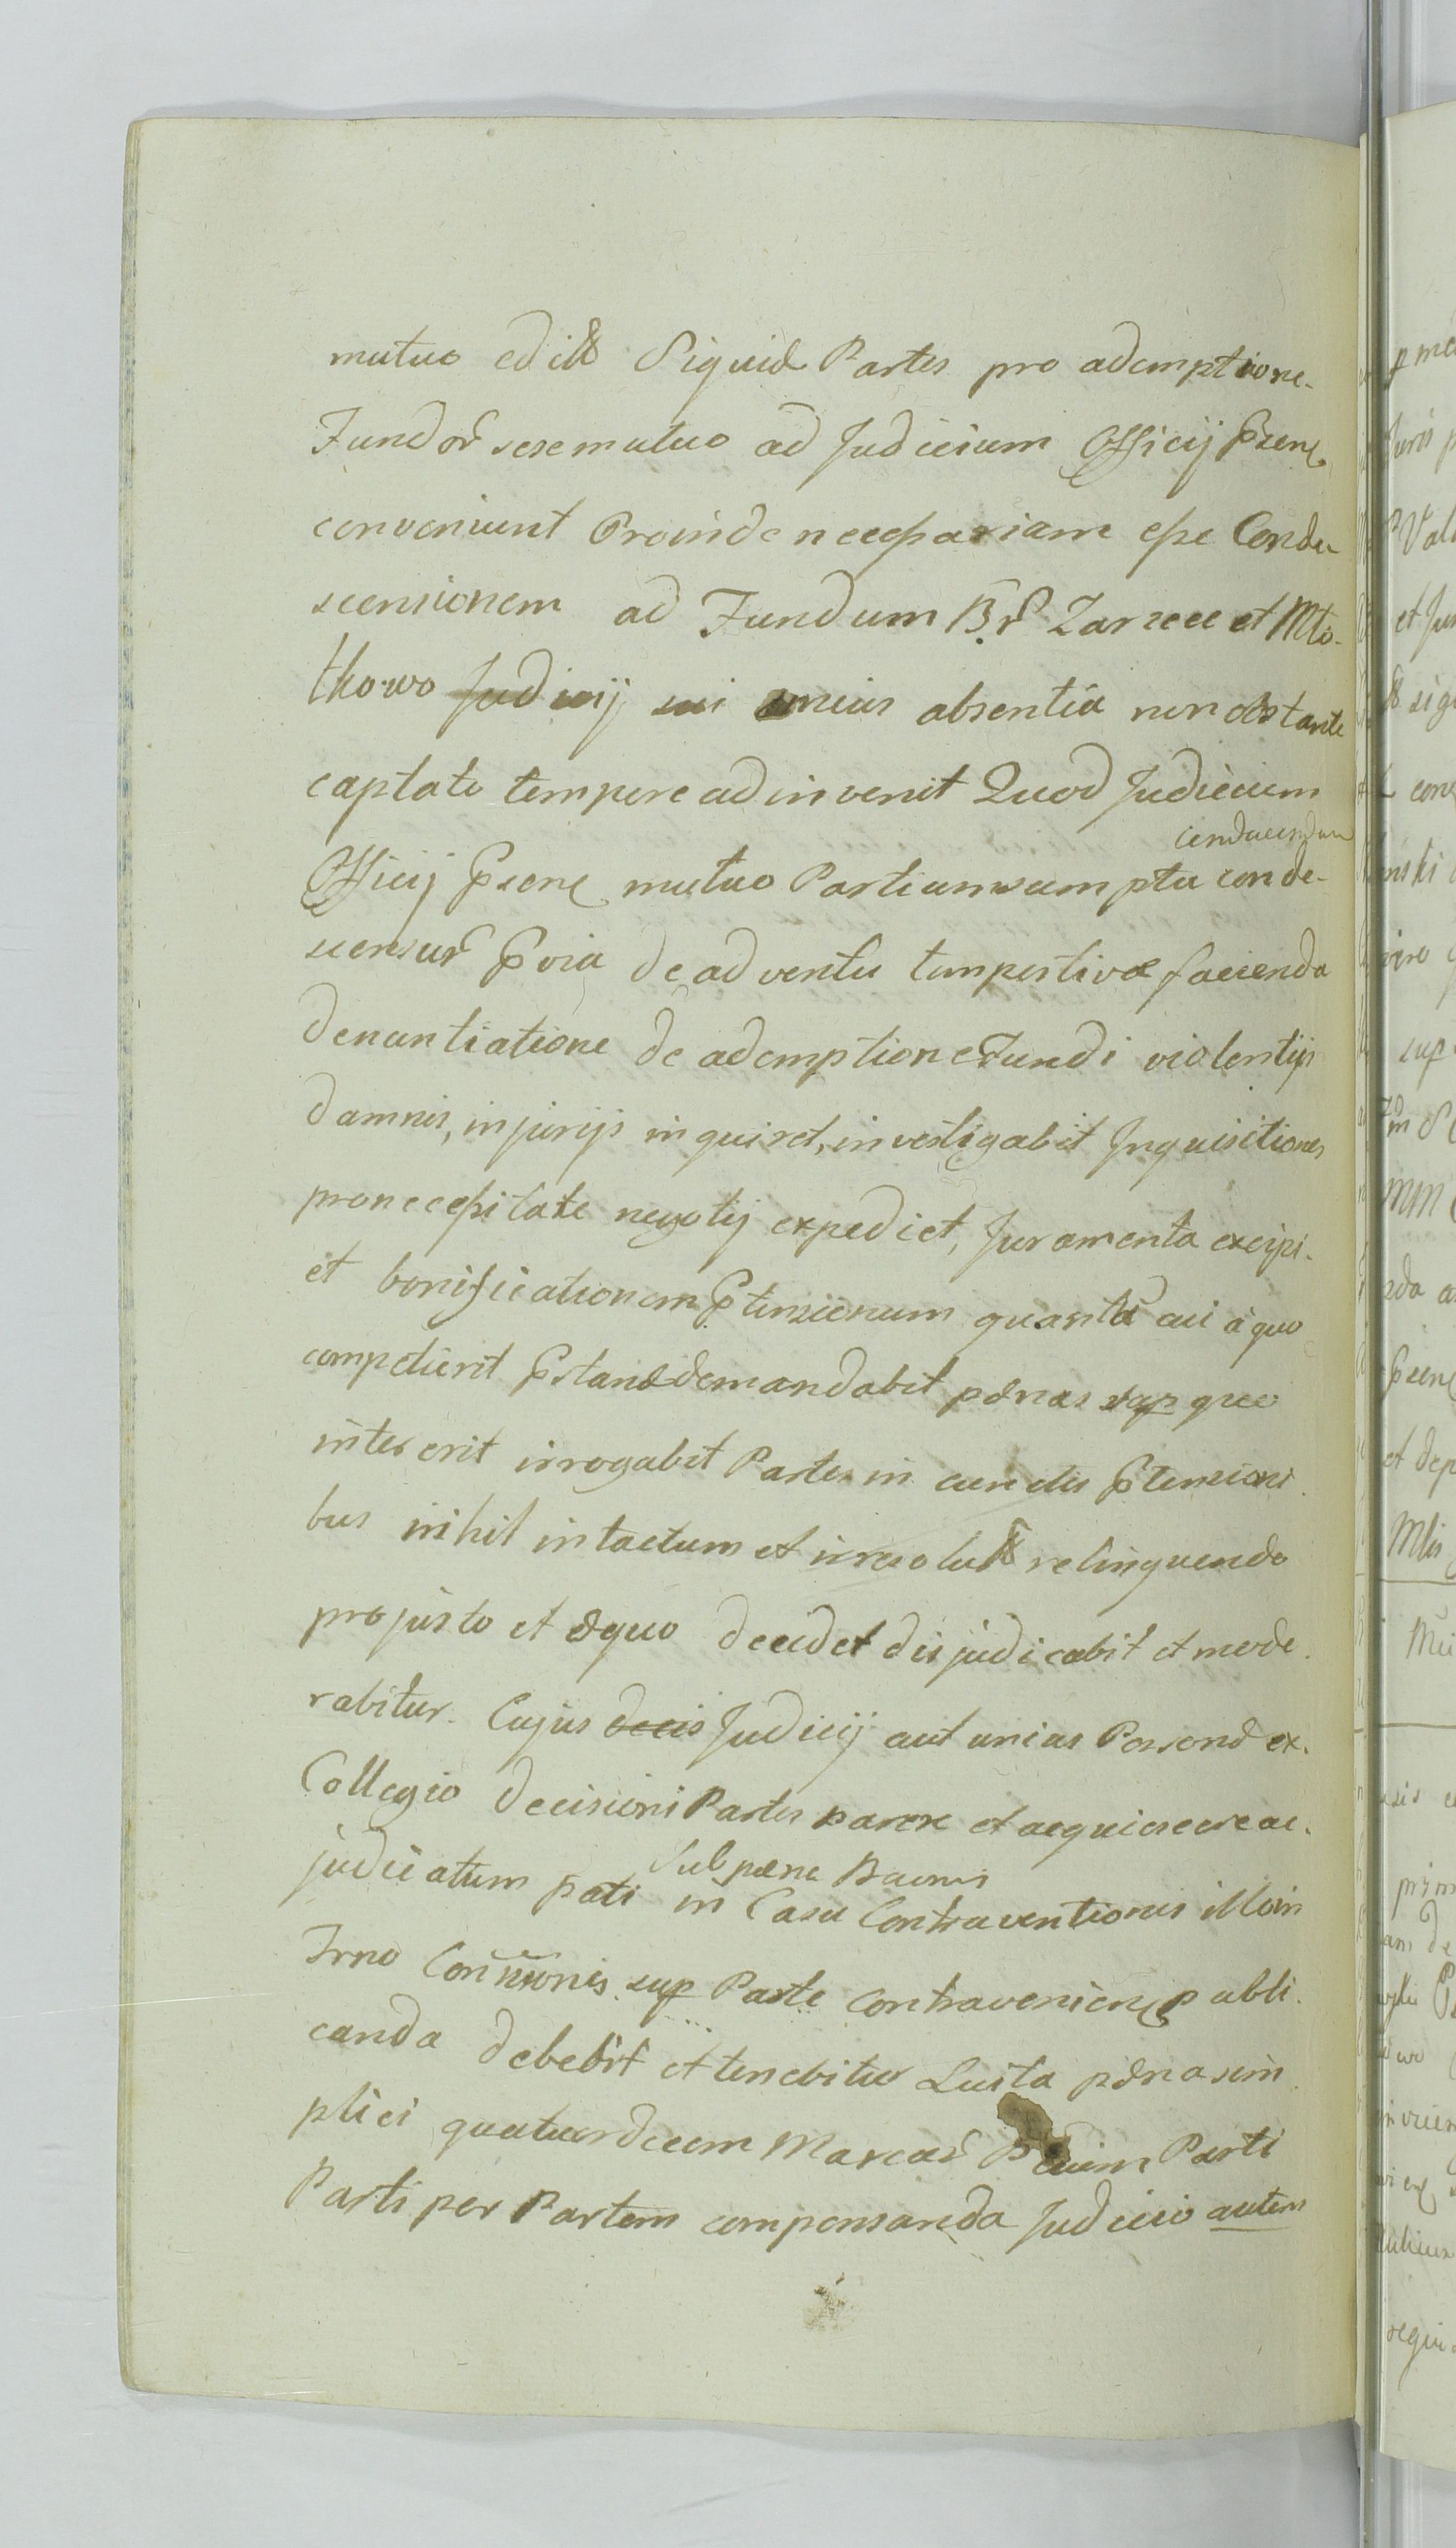 mutuo edit Siquid Partes pro ademptione
Fundor sese mutuo ad Judicium Officij Psens
conveniunt Proinde necessariam esse Conde
scensionem ad Fundum Br Zarzece et Mło-
tkowo Judicij sui unius absentia non obstante
captato tempore adinvenit Quod Judicium
conducendum
Officij Psens mutuo Partium sumptu conde-
scensur Pvia de adventu tempestivæ facienda
denuntiatione de ademptione Fundi violentijs
damnis, injurijs inquiret, investigabit Inquisitiones
pro necessitate negotij expediet, Juramenta excipi-
et bonificationem Ptensionum quanta cui à quo
competierit Pstand demandabit pænas sup quo
intererit irrogabit Partes in cunctis Ptensioni
bus nihil intactum et irresolut relinquendo
pro justo et æquo decidet disjudicabit et mode
rabitur. Cujus decis Judicij aut unius Person ex
Collegio decisioni Partes parere et acquiescere ac
Sub pæna Bannis
judicatum pati in Casu Contraventionis illo in
Trno Conmionis sup Parte contraveniens publi
canda debebit et tenebitur Luita pæna sim
plici quatuordecem Marcar Parti
Parti per Partem compensanda Judicio autem